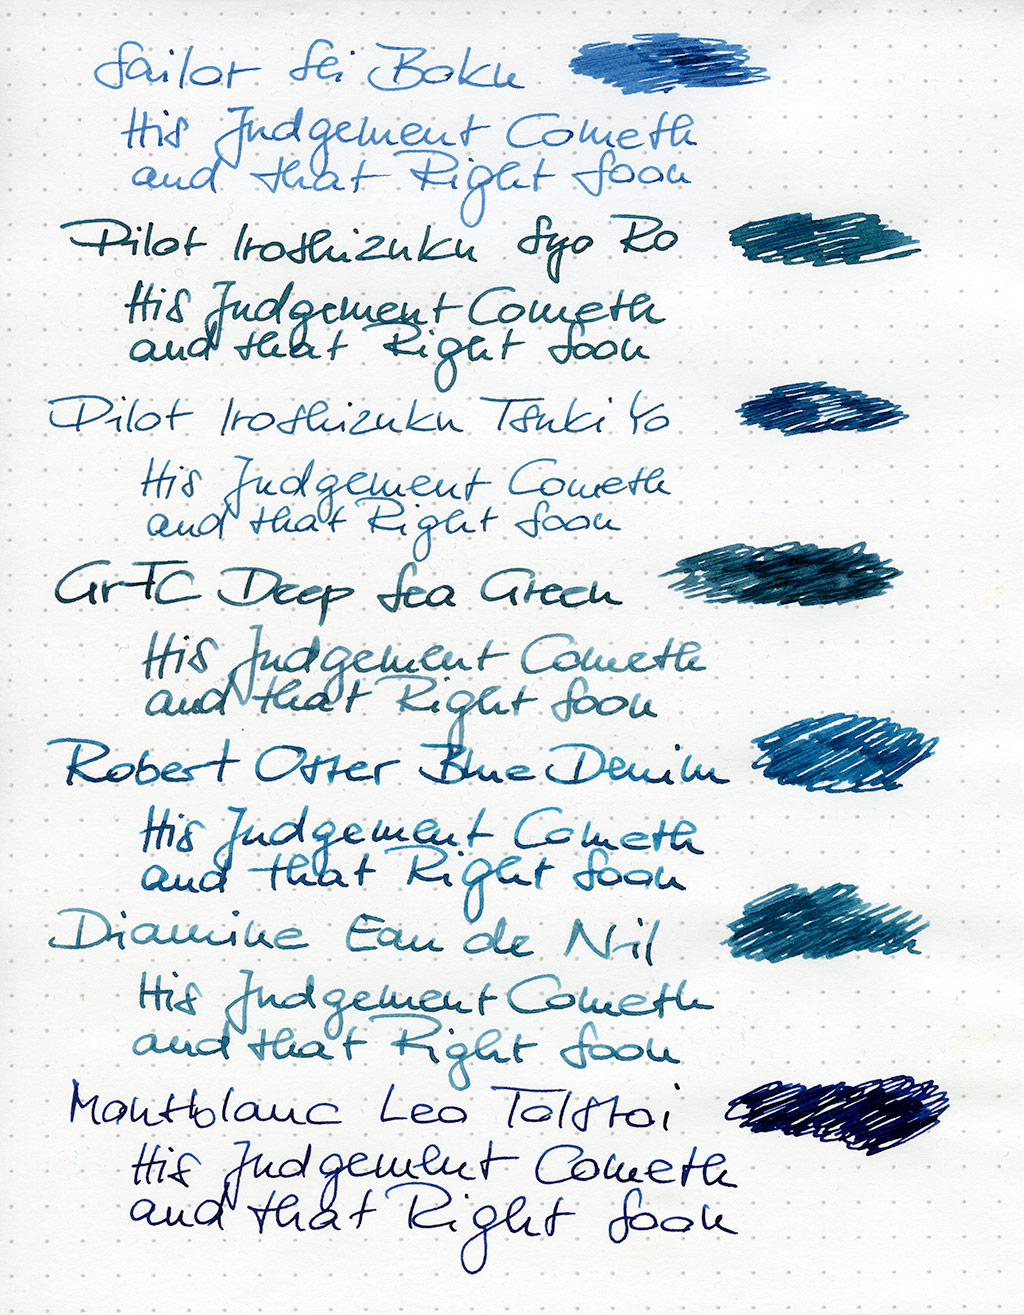 Sailor Sei Boku
His Judgement Cometh
and that Right Soon
Pilot Iroshizuku Syo Ro
His Judgement Cometh
and that Right Soon
Pilot Iroshizuku Tsuki Yo
His Judgement Cometh
and that Right Soon
GvFC Deep Sea Green
His Judgement Cometh
and that Right Soon
Robert Oster Blue Denim
His Judgement Cometh
and that Right Soon
Diamine Eau de Nil
His Judgement Cometh
and that Right Soon
Montblanc Leo Tolstoi
His Judgement Cometh
and that Right Soon